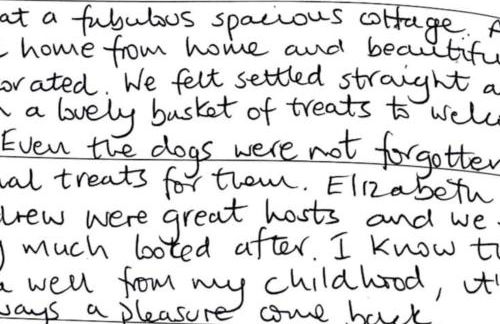 at a fabulous spacious cottage.
home from home and beautifu
orated. We felt settled straight a
a lovely basket of treats to welc
Even the dogs were not forgotten
nal treats for them. Elizabeth
drew were great hosts and we
much looked after. I know t
well from my childhood, it'
ways a pleasure come back